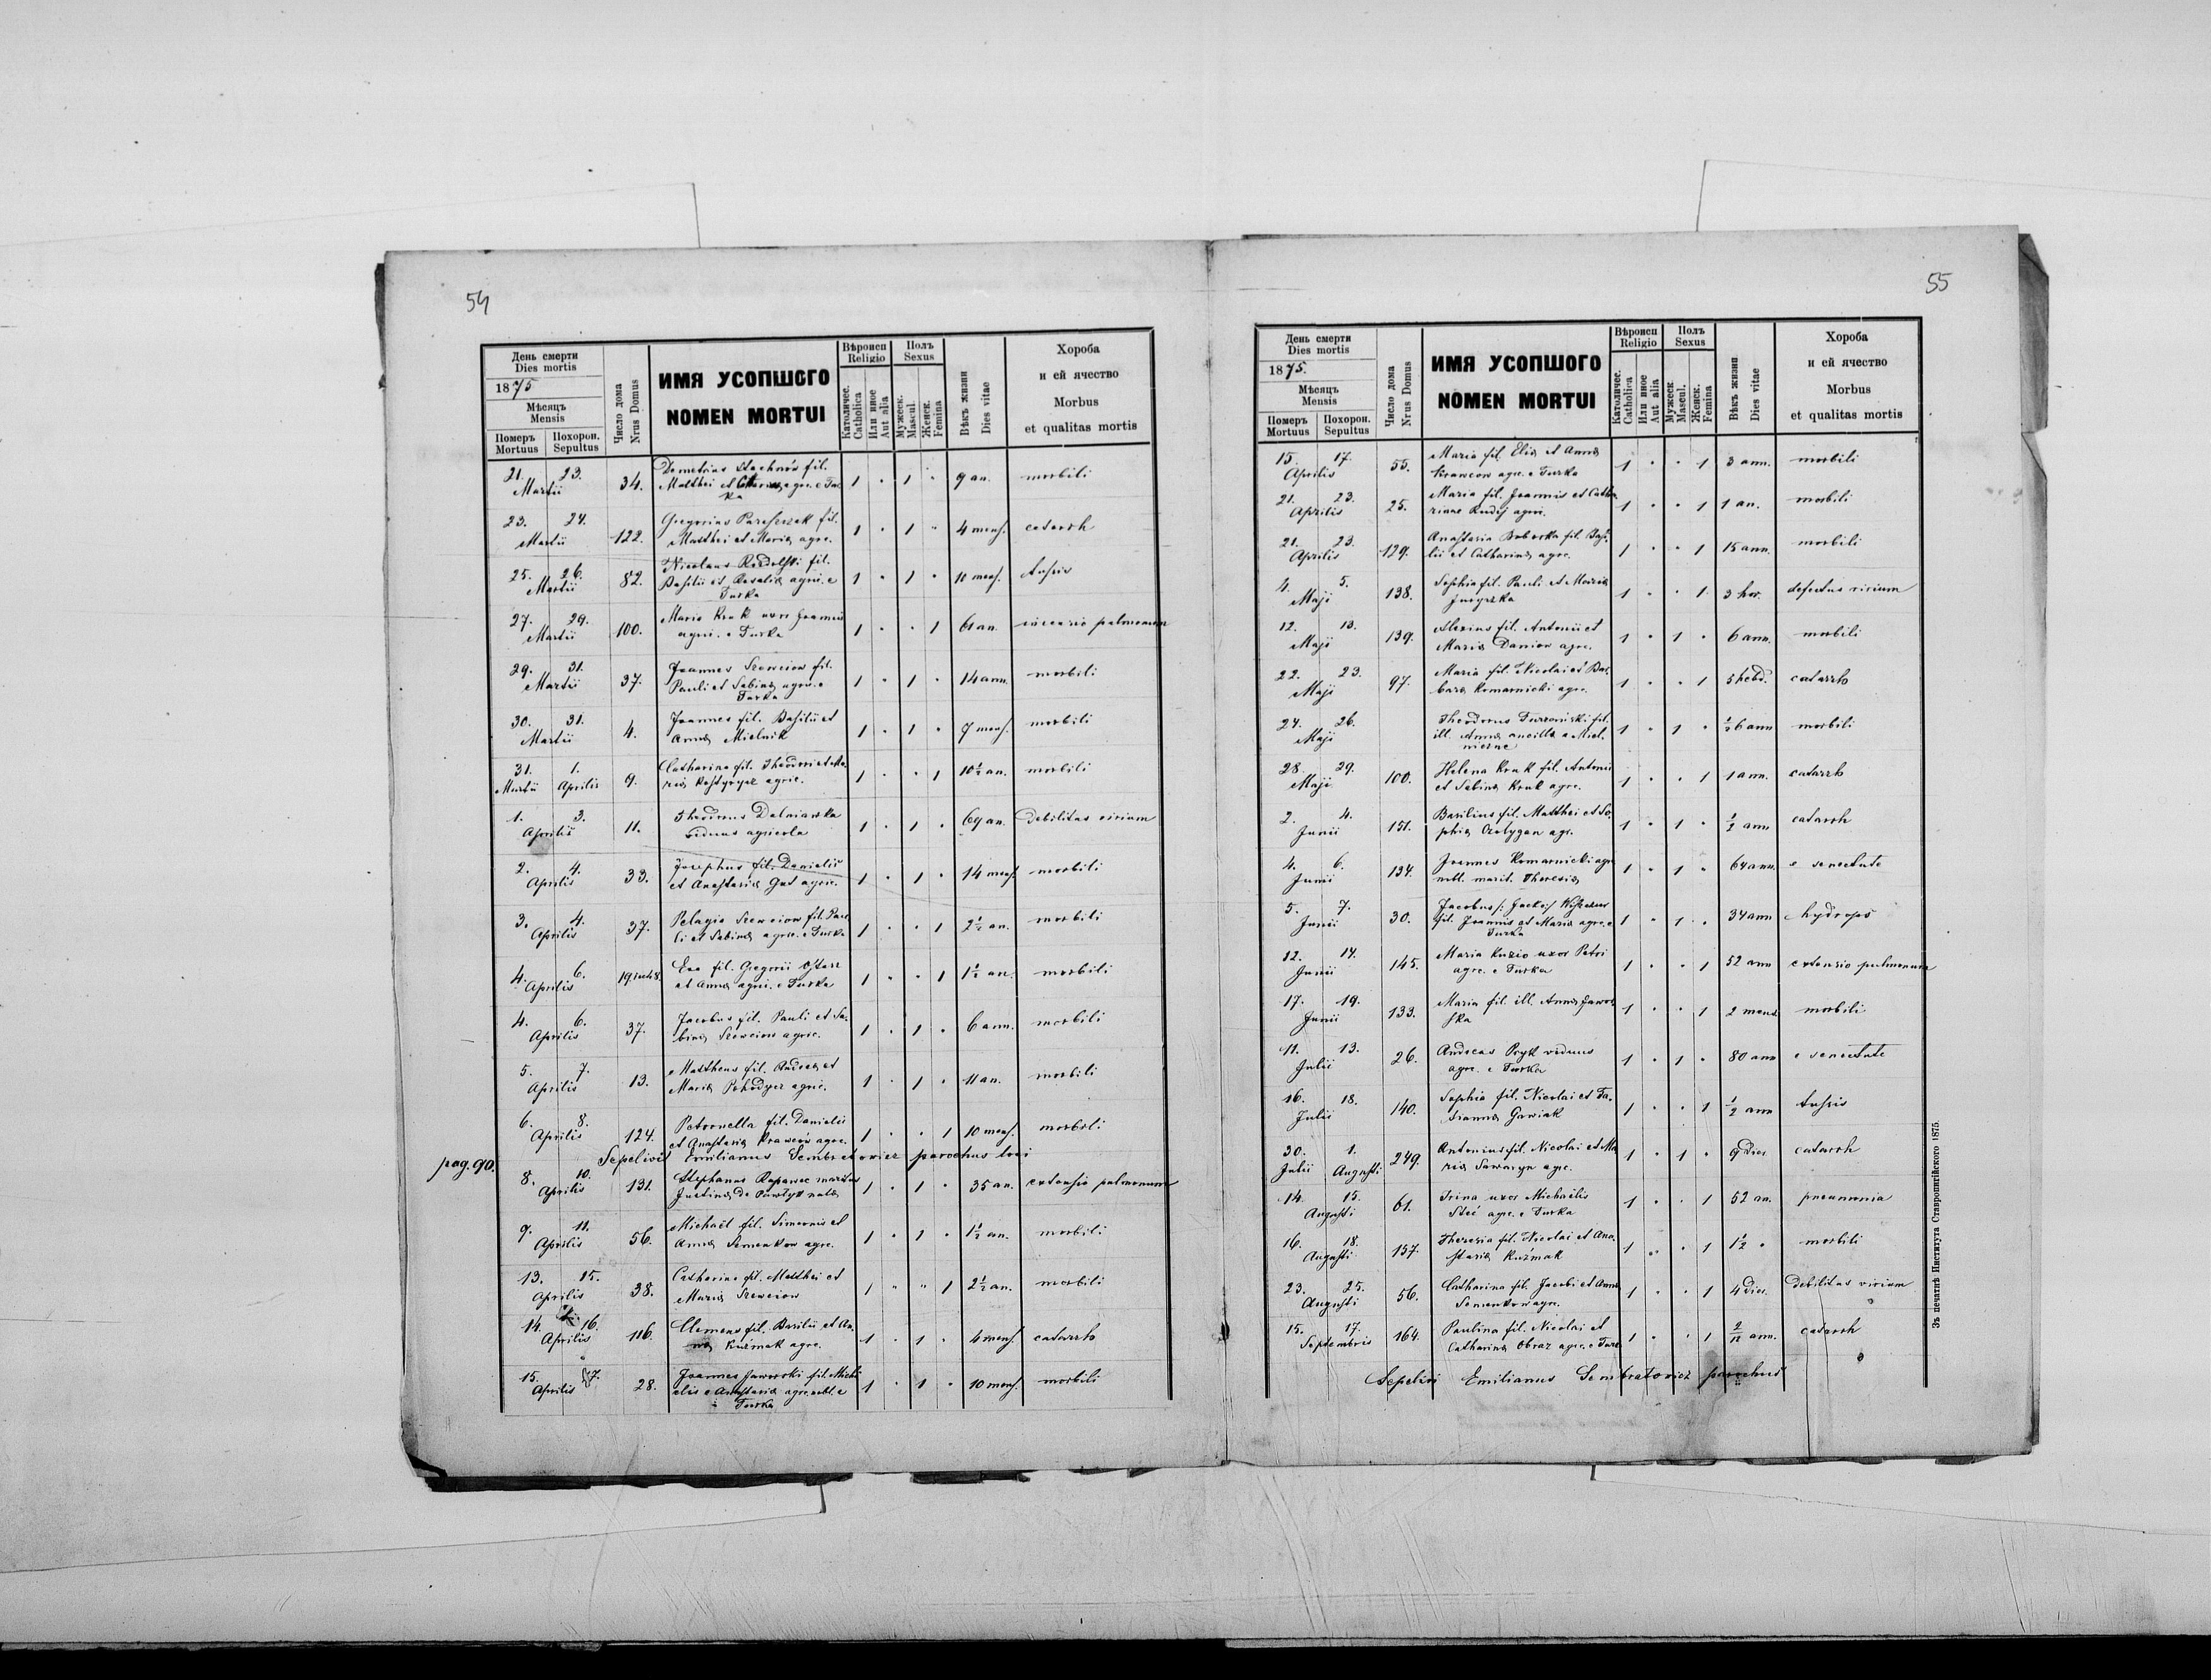 54
День смерти
Dies mortis
1875
Мѣсяцъ
Mensis
Померъ Похорон.
Mortuus Sepultus
Число дома
Nrus Domus
ИМЯ УСОПШОГО
NOMEN MORTUI
Вѣроисп
Religio
Католичес.
Catholica
Или иное
Aut alia
Полъ
Sexus
Мужеск.
Mascul.
Женск.
Femina
Вѣкъ жизни
Dies vitae
Хороба
и ей ячество
Morbus
et qualitas mortis
21. 23. Martii 34. Demetrius Stachnów fil. 1 " 1 " 9 an. morbili
Matthei et agr. e Tur
ka
23. 24. Martii 122. Gregorius fil. 1 " 1 " 4 mens. catarrh
Matthei et Mariæ agrc.
25. 26. Martii 82. Nicolaus fil. 1 " 1 " 10 mens. tussis
Basilii et Rosaliæ agric. e
Turka
27. 29. Martii 100. Maria Kruk uxor Joannis 1 " " 1 61 an. pulmonum
agric. e Turka
29. 31. Martii 37. Joannes Szewciow fil. 1 " 1 " 14 ann. morbili
Pauli et Sabinæ agric. e
Turka
30. 31. Martii 4. Joannes fil. Basilii et 1 " 1 " 7 mens. morbili
Annæ Mielnik
31. 1. Martii Aprilis 9. Catharina fil. Theodori et Ma 1 " " 1 10 1/2 an. morbili
riæ agric.
1. 3. Aprilis 11. Theodorus Dalniawka 1 " 1 " 69 an. Debilitas virium
viduus agricola
2. 4. Aprilis 33. Josephus fil. Danielis 1 " 1 " 14 mens. morbili
et Anastasiæ Gut agric.
3. 4. Aprilis 37. Pelagia Szewciow fil. Pau 1 " " 1 2 1/2 an. morbili
li et Sabinæ agric. e Turka
4. 6. Aprilis 19. Eva fil. Gregorii 1 " " 1 1 1/2 an. morbili
et Annæ agric. e Turka
4. 6. Aprilis 37. Jacobus fil. Pauli et Sa 1 " 1 " 6 ann. morbili
binæ Szewciow agric.
5. 7. Aprilis 13. Mattheus fil. Andreæ et 1 " 1 " 11 an. morbili
Mariæ agric.
6. 8. Aprilis 124. Petronella fil. Danielis 1 " " 1 10 mens. morbili
et Anastasiæ Krawców agrc.
Sepelivit Emilianus Sembratowicz parochus loci
pag. 90.
8. 10. Aprilis 131. Stephanus Ropawec maritus 1 " 1 " 35 an. extensio pulmonum
Justinæ de natæ
9. 11. Aprilis 56. Michaël fil. Simeonis et 1 " 1 " 1 1/2 an. morbili
Annæ Semenkow agrc.
13. 15. Aprilis 38. Catharina fil. Matthei et 1 " " 1 2 1/2 an. morbili
Mariæ Szewciow
14. 16. Aprilis 116. Clemens fil. Basilii et An 1 " 1 " 4 mens. catarrh
næ Kuźmak agrc.
15. 17. Aprilis 28. Joannes Jaworski fil. Micha 1 " 1 " 10 mens. morbili
elis e Anastasiæ agrc. nobl. e
Turka
55
День смерти
Dies mortis
1875.
Мѣсяцъ
Mensis
Померъ Похорон.
Mortuus Sepultus
Число дома
Nrus Domus
ИМЯ УСОПШОГО
NOMEN MORTUI
Вѣроисп
Religio
Католичес.
Catholica
Или иное
Aut alia
Полъ
Sexus
Мужеск
Mascul.
Женск.
Femina
Вѣкъ жизни
Dies vitae
Хороба
и ей ячество
Morbus
et qualitas mortis
15. 17. Aprilis 55. Maria fil. Eliæ et Annæ 1 " " 1 3 ann. morbili
Krawcow agrc. e Turka
21. 23. Aprilis 25. Maria fil. Joannis et Catha 1 " " 1 1 an. morbili
rinae Rudij agric.
21. 23. Aprilis 129. Anastasia Boberka fil. Basi 1 " " 1 15 ann. morbili
lii et Catharinæ agrc.
4. 5. Maji 138. Sophia fil. Pauli et Mariæ 1 " " 1 3 hor. defectus virium
12. 13. Maji 139. Alexius fil. Antonii et 1 " 1 " 6 ann. morbili
Mariæ Daniow agrc.
22. 23. Maji 97. Maria fil. Nicolai et Bar 1 " " 1 5 hebd. catarrh
baræ Komarnicki agrc.
24. 26. Maji Theodorus Turzański fil. 1 " 1 " 1/2 6 ann morbili
ill. Annæ ancilla e Miel
niczne
28. 29. Maji 100. Helena Kruk fil. Antonii 1 " " 1 1 ann. catarrh
et Sabinæ Kruk agrc.
2. 4. Junii 151. Basilius fil. Matthei et So 1 " 1 " 1/2 ann catarrh
phiæ Cołygan agr.
4. 6. Junii 134. Joannes Komarnicki agr. 1 " 1 " 64 ann. e senectute
nobl. marit. Theresiæ
5. 7. Junii 30. Jacobus /: Jacko :/ 1 " 1 " 34 ann hydrops
fil. Joannis et Mariæ agrc. e
Turka
12. 14. Junii 145. Maria Kuzio uxor Petri 1 " " 1 52 ann extensio pulmonum
agrc. e Turka
17. 19. Junii 133. Maria fil. ill. Annæ Jawor 1 " " 1 2 mens morbili
ska
11. 13. Julii 26. Andreas Pryk viduus 1 " 1 " 80 ann e senectute
agrc. e Turka
16. 18. Julii 140. Sophia fil. Nicolai et Ta 1 " " 1 1/2 ann tussis
tiannæ Gawiak
30. 1. Julii Augusti 249. Antonius fil. Nicolai et Ma 1 " 1 " 9 dies catarrh
riæ Sawaryn agrc.
14. 15. Augusti 61. Irina uxor Michaëlis 1 " " 1 52 an. pneumonia
Steć agrc. e Turka
16. 18. Augusti 157. Theresia fil. Nicolai et Ana 1 " " 1 1 1/2 " morbili
stasiæ Kuźmak
23. 25. Augusti 56. Catharina fil. Jacobi et Annæ 1 " " 1 4 dies Debilitas virium
Semenkow agrc.
15. 17. Septembris 164. Paulina fil. Nicolai et 1 " " 1 2/12 ann. catarrh
Catharinæ Obraz agrc. e Turk
Sepelivi Emilianus Sembratowicz parochus
Зъ печатнѣ Института Ставропигійского 1875.